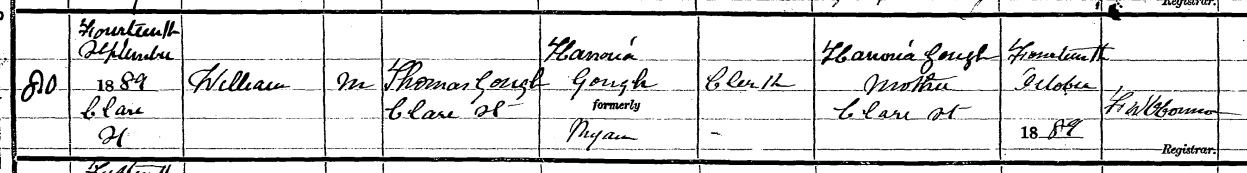 Registrar.
80
Fourteenth
September
1889
Clare
St
William
M
Thomas Gough
Clare St
Hanoria
Gough
formerly
Ryan
Clerk
-
Hanoria Gough
Mother
Clare St
Fourteenth
October
1889
Registrar.